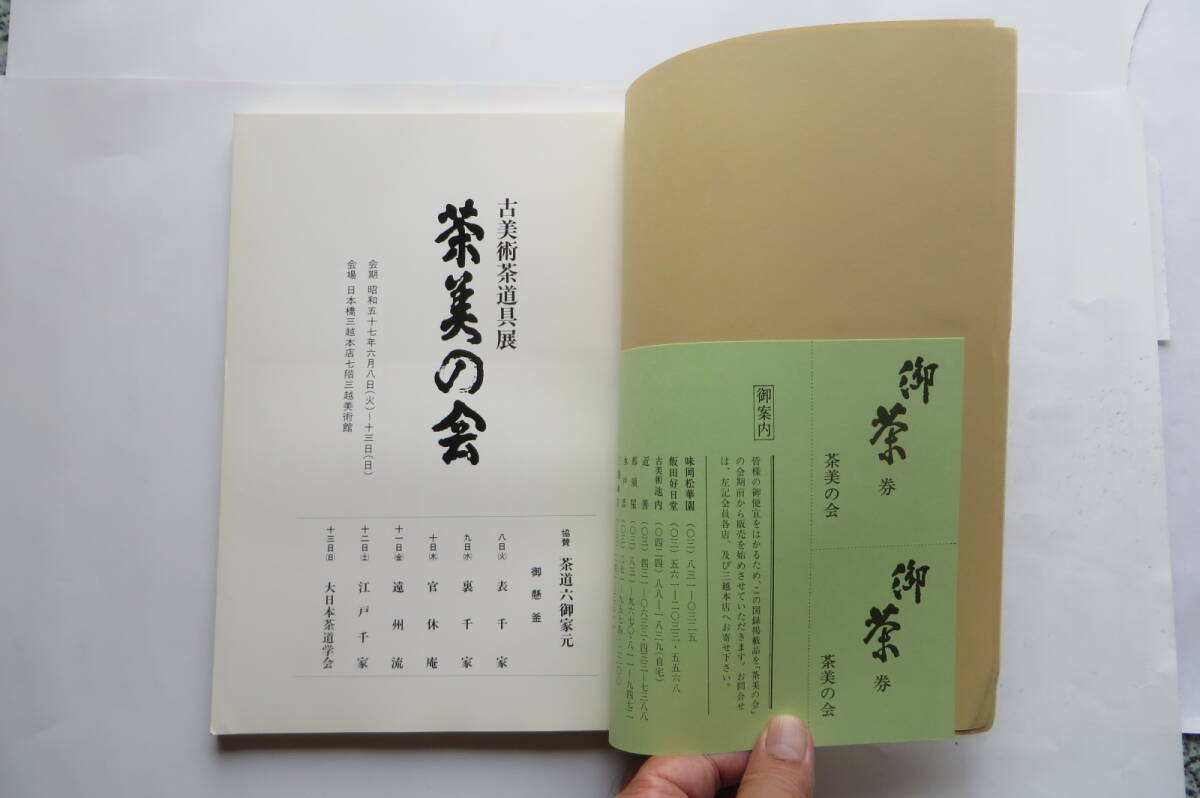 古美術茶道具展
茶美の会
会期 昭和五十七年六月八日(火)〜十三日(日)
会場 日本橋三越本店七階三越美術館
協賛 茶道六御家元
御懸釜
八日(火) 表千家
九日(水) 裏千家
十日(木) 官休庵
十一日(金) 遠州流
十二日(土) 江戸千家
十三日(日) 大日本茶道学会
御茶券
茶美の会
御茶券
茶美の会
御案内
皆様の御便宜をはかるため、この図録掲載品を「茶美の会」
の会期前から販売を始めさせていただきます。お問合せ
は、左記会員各店、及び三越本店へお寄せ下さい。
味岡松華園 (〇三)八三一―〇三二五
飯田好日堂 (〇三)五六一―二〇三三・五五六八
古美術池内 (〇四二四)八八―一八三九(自宅)
近善 (〇三)四三一―〇六三三・四三三―七三八八
(〇三)八三一―九六七〇・八一一―九四七二